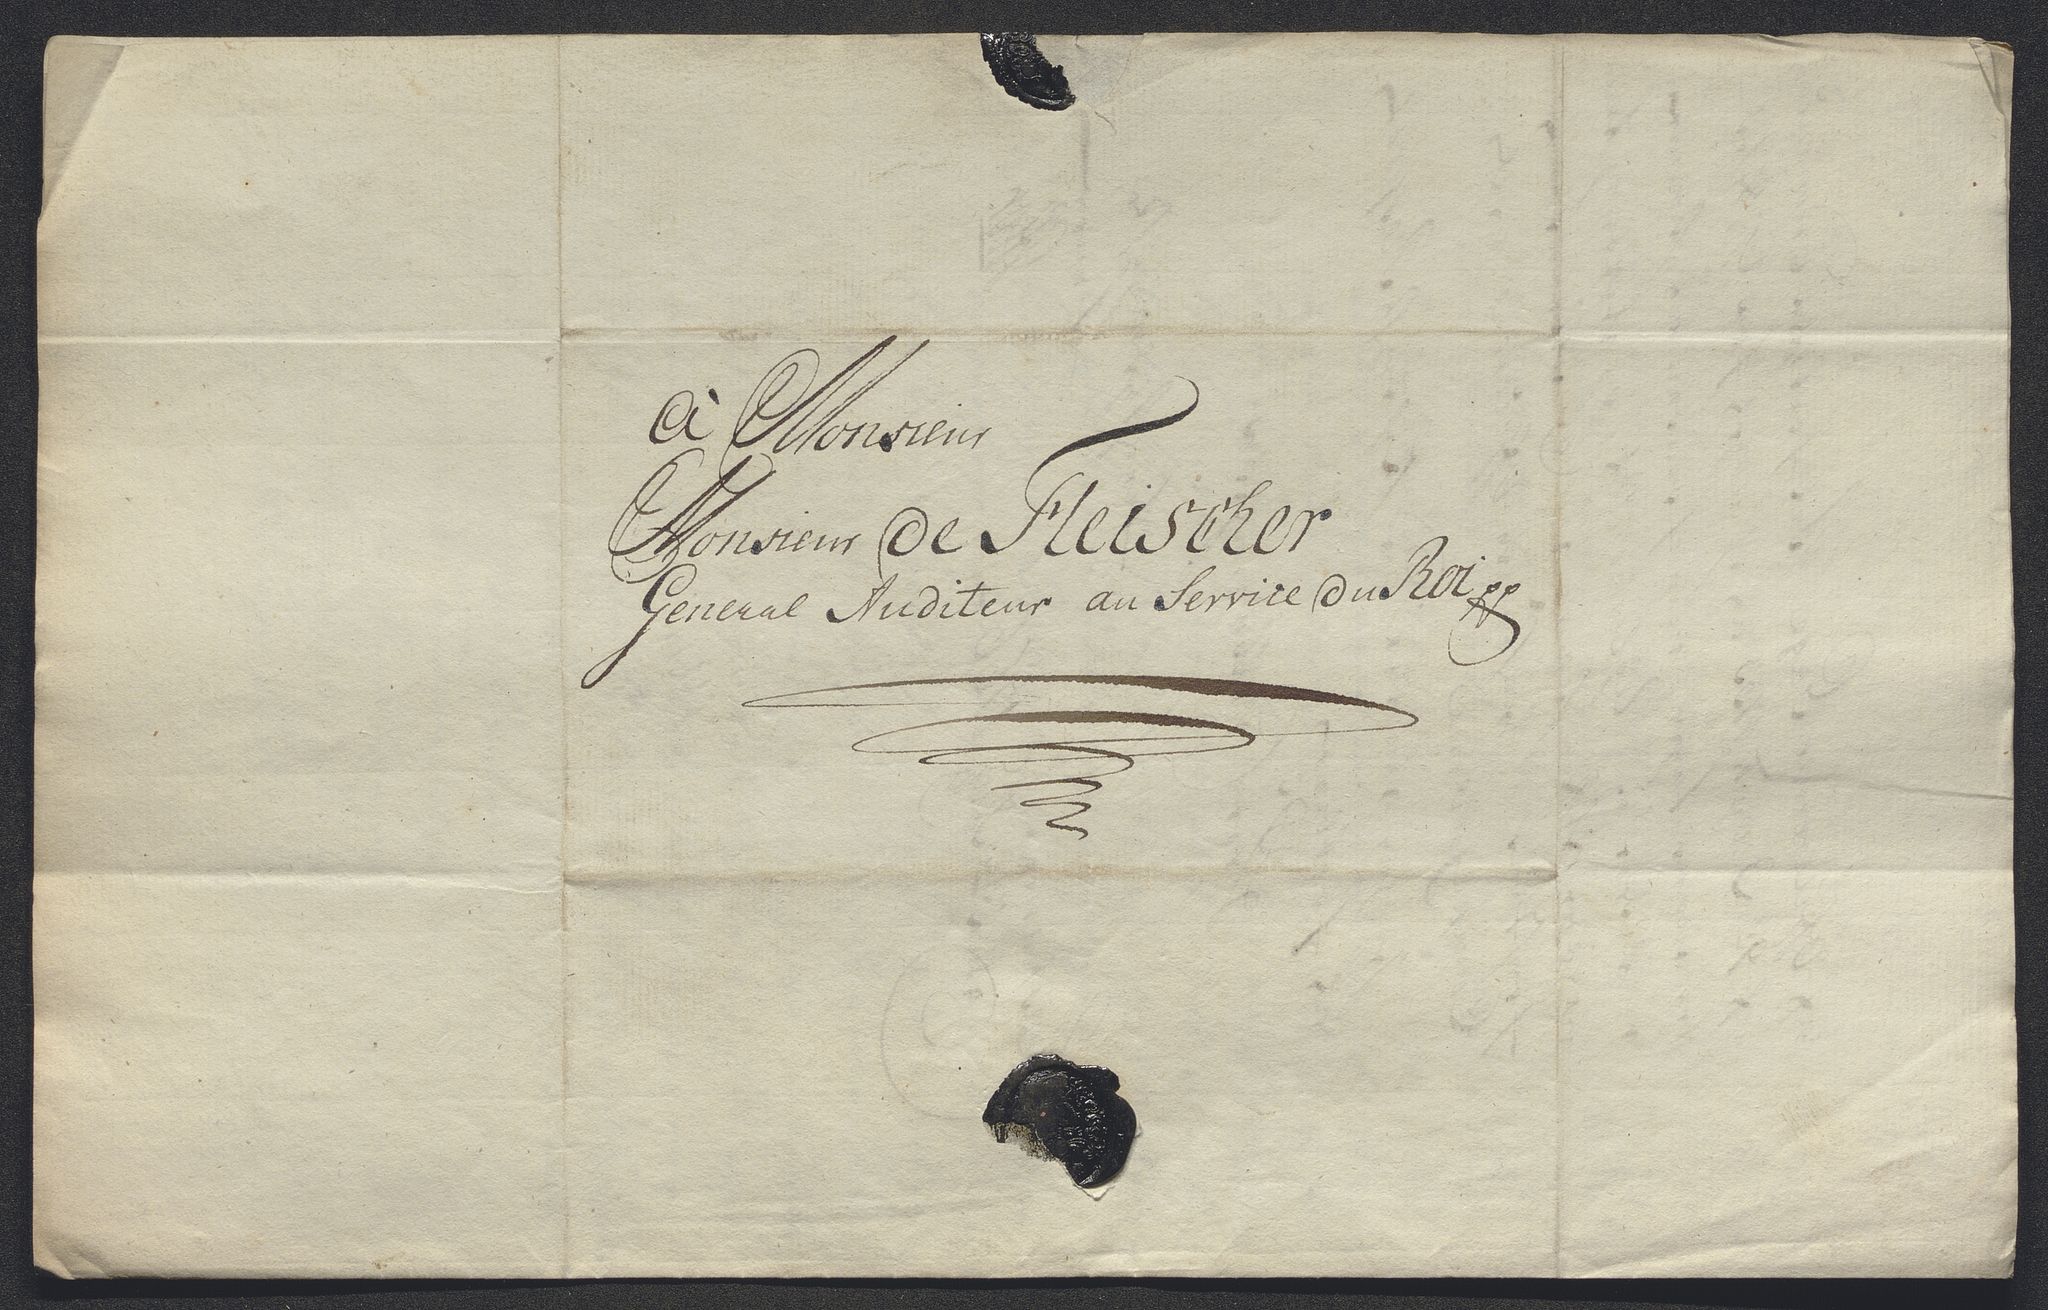 à Monsieur
Monsieur de Fleischer
General Auditeur au Service du Roi pp